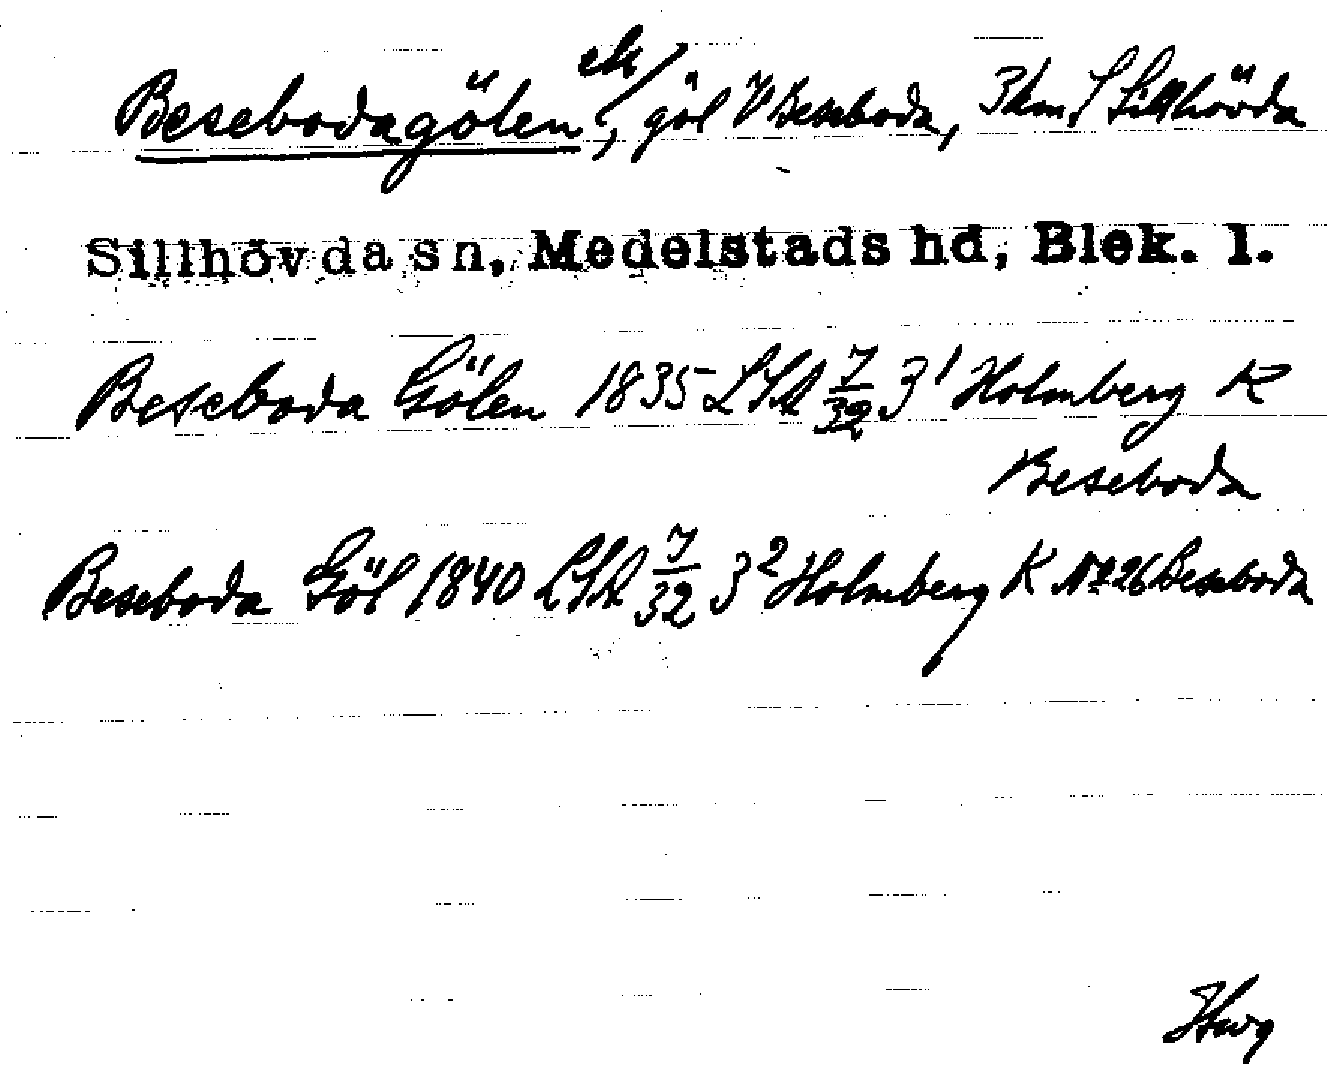 Besebodagölen ek/, göl V Beseboda, 3 km S Sillhövda
Sillhövda sn, Medelstads hd, Blek. l.
Beseboda Gölen 1835 LSA 7/32 3¹ Holmberg K
Beseboda
Beseboda Göl 1840 LSA 7/32 3² Holmberg K No 26 Beseboda